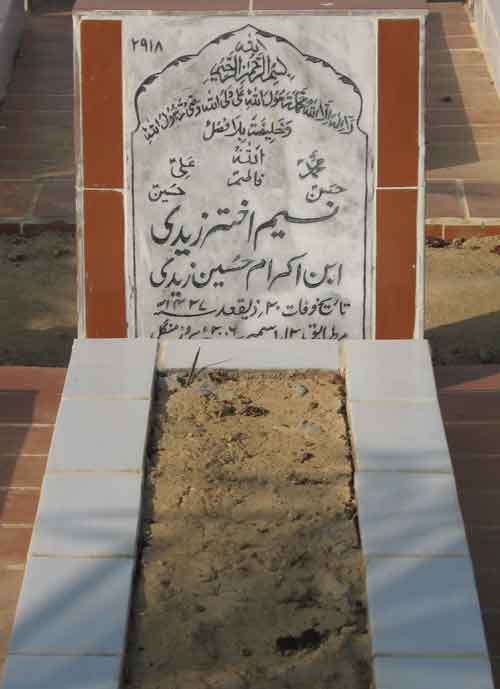 ۲۹۱۸
بسم الله الرحمن الرحیم
لا اله الا الله محمد رسول الله علی ولی الله وصی رسول الله
وخلیفتہ بلا فصل
محمدؐ اللہ علیؑ
حسنؑ فاطمہؑ حسینؑ
نسیم اختر زیدی
ابن اکرام حسین زیدی
تاریخ وفات ۲۰؍ ذیقعد ۱۴۲۷ھ
مطابق ۱۲؍ دسمبر ۲۰۰۶ء بروز منگل